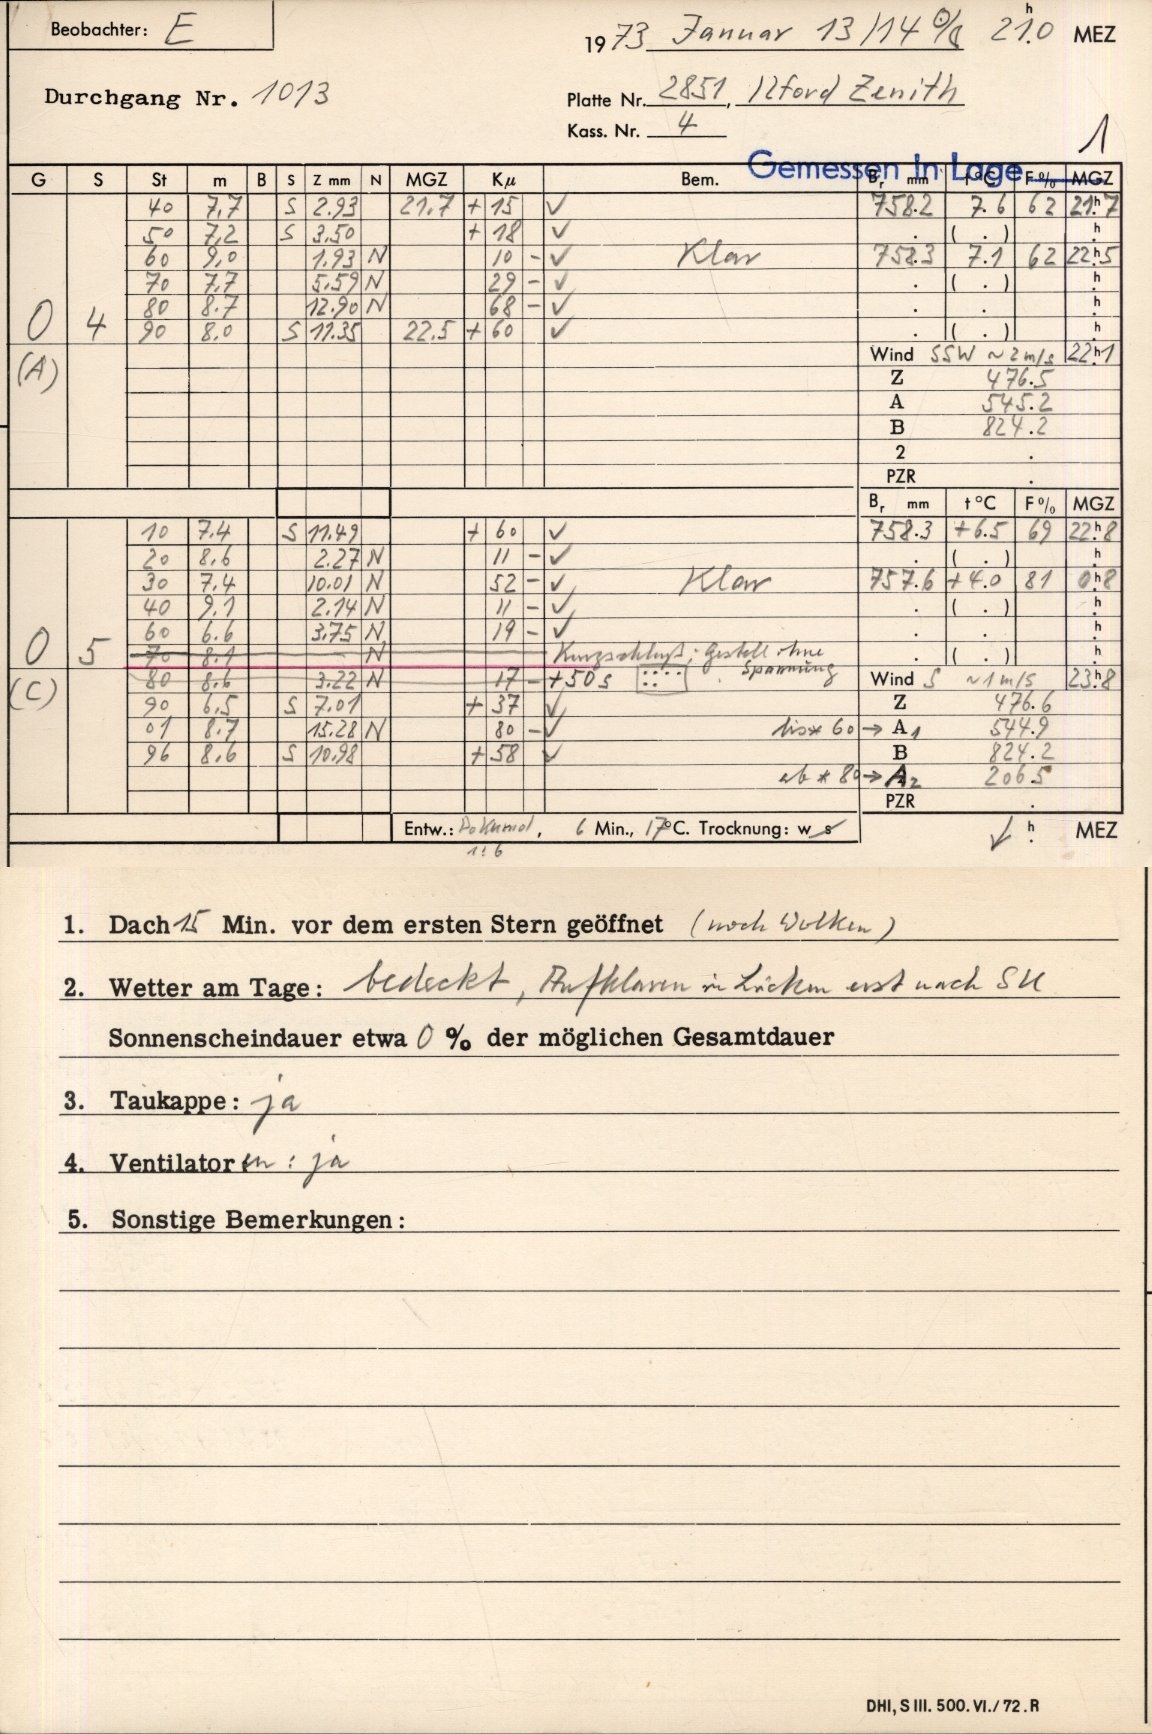 Beobachter: E
1973 Januar 13/14 21h.0 MEZ
Durchgang Nr. 1013
Platte Nr. 2851, Ilford Zenith
Kass. Nr. 4
1
Gemessen in Lage
G S St m B S Z mm N MGZ Kµ Bem. Br mm t°C F% MGZ
40 7.7 S 2.93 21.7 + 15 ✓ 758.2 7.6 62 21h.7
50 7.2 S 3.50 + 18 ✓ . ( . ) h.
60 9.0 1.93 N 10 - ✓ Klar 758.3 7.1 62 22h.5
70 7.7 5.59 N 29 - ✓ . ( . ) h.
80 8.7 12.90 N 68 - ✓ . . h.
0 4 90 8.0 S 11.35 22.5 + 60 ✓ . ( . ) h.
(A) Wind SSW ~2m/s 22h.1
Z 476.5
A 545.2
B 824.2
2 .
PZR .
Br mm t°C F% MGZ
10 7.4 S 11.49 + 60 ✓ 758.3 +6.5 69 22h.8
20 8.6 2.27 N 11 - ✓ . ( . ) h.
30 7.4 10.01 N 52 - ✓ Klar 757.6 +4.0 81 0h.8
40 9.1 2.14 N 11 - ✓ . ( . ) h.
60 6.6 3.75 N 19 - ✓ . . h.
0 5 70 8.1 N Kurzschluß; Gestell ohne Spannung . ( . ) h.
(C) 80 8.6 3.22 N 17 - +50s Wind S ~1m/s 23h.8
90 6.5 S 7.01 + 37 ✓ Z 476.6
01 8.7 15.28 N 80 - ✓ bis * 60 → A1 544.9
96 8.6 S 10.98 + 58 ✓ B 824.2
ab * 80 → A2 206.5
PZR .
Entw.: Dokumol, 6 Min., 17°C. Trocknung: w s h. MEZ
1:6
1. Dach 15 Min. vor dem ersten Stern geöffnet (noch Wolken)
2. Wetter am Tage: bedeckt, Aufklaren in Lücken erst nach SU
Sonnenscheindauer etwa 0 % der möglichen Gesamtdauer
3. Taukappe: ja
4. Ventilatoren: ja
5. Sonstige Bemerkungen:
DHI, S III. 500. VI./72. R